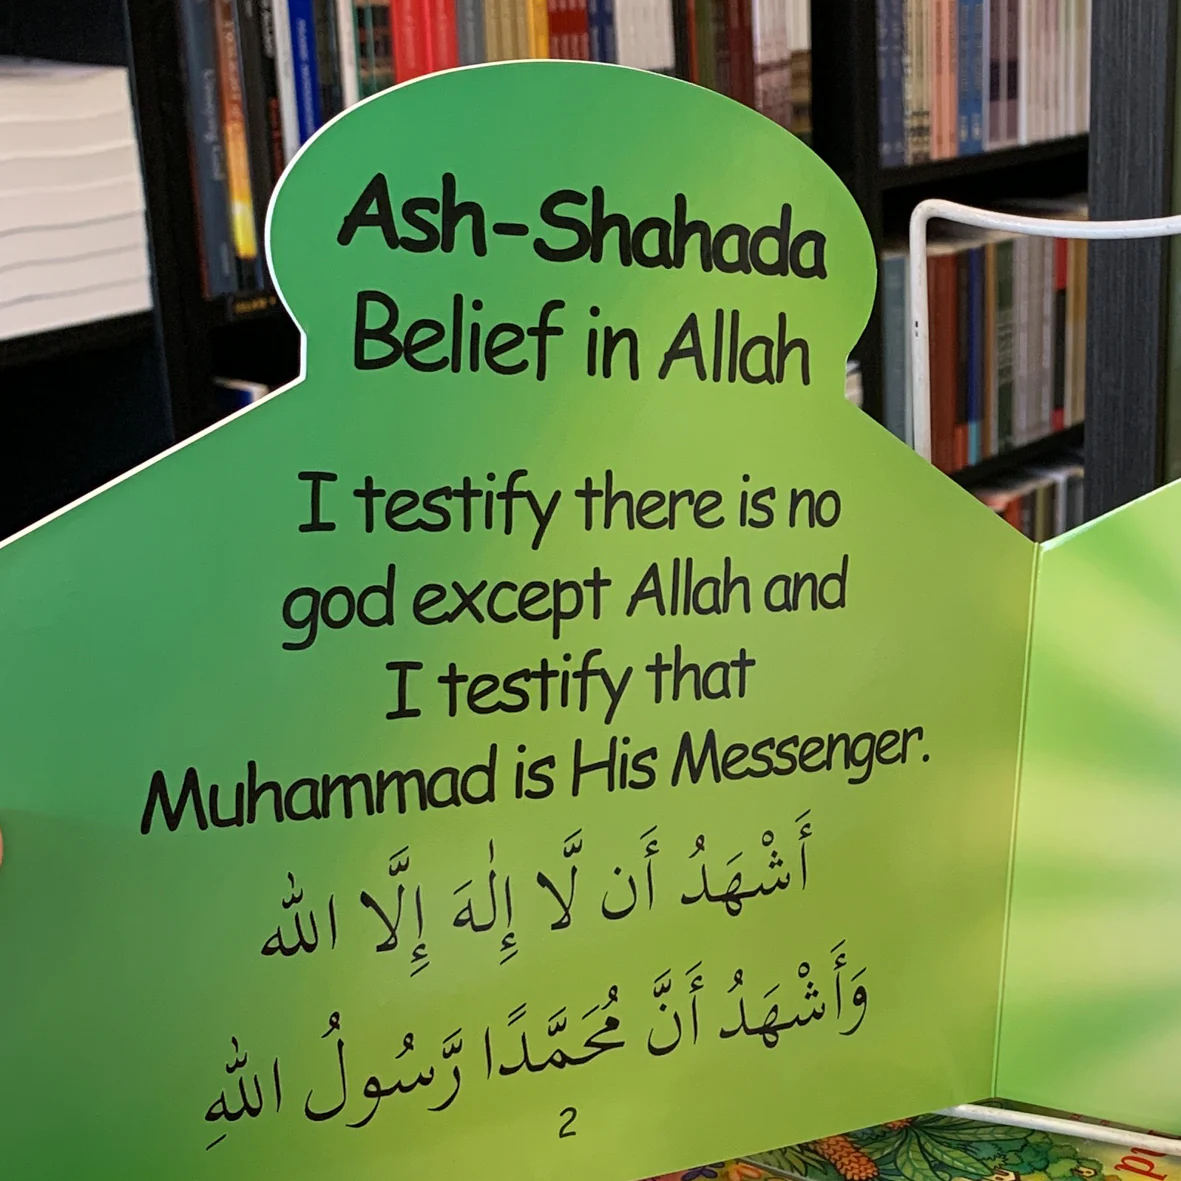 Ash-Shahada
Belief in Allah
I testify there is no
god except Allah and
I testify that
Muhammad is His Messenger.
أَشْهَدُ أَن لَّا إِلٰهَ إِلَّا اللّٰهُ
وَأَشْهَدُ أَنَّ مُحَمَّدًا رَّسُولُ اللّٰهِ
2